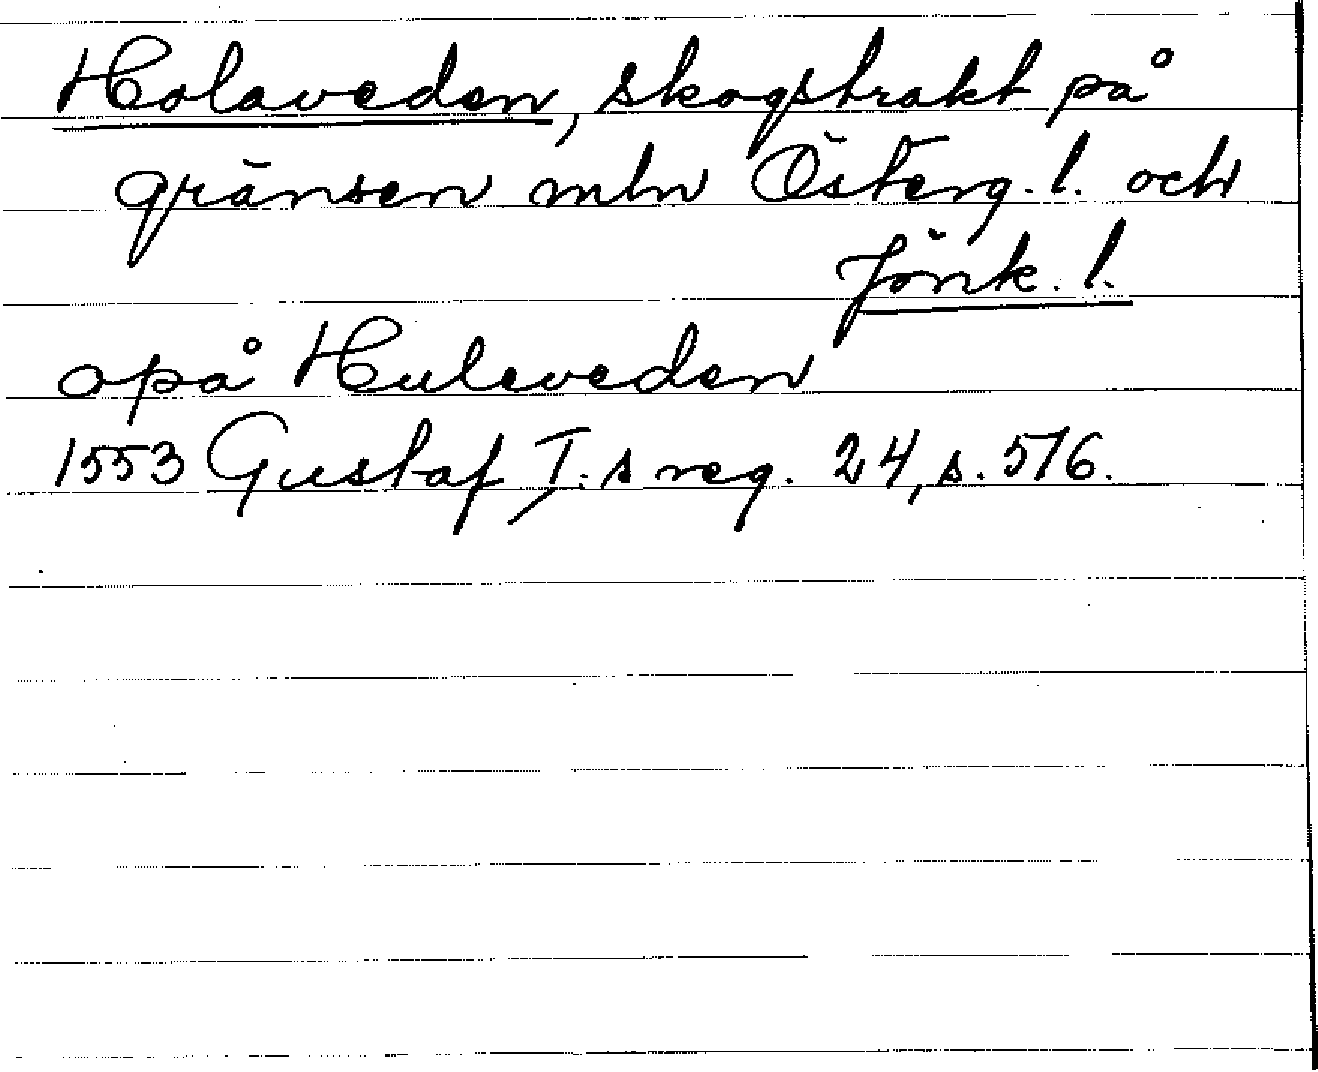 Holaveden, skogstrakt på
gränsen mln Österg. l. och
Jönk. l.
opå Huleveden
1553 Gustaf I:s reg. 24, s. 516.